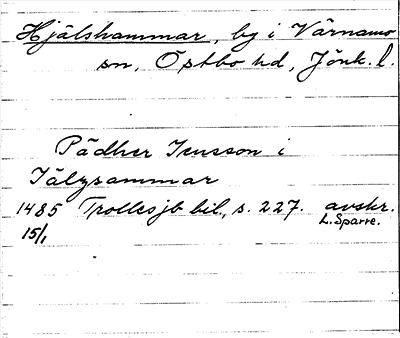 Hjälshammar, by i Värnamo
sn, Östbo hd, Jönk. l.
Pädher Jensson i
Jälzsammar
1485 Trollesjb bil., s. 227. avskr.
15/1 L. Sparre.